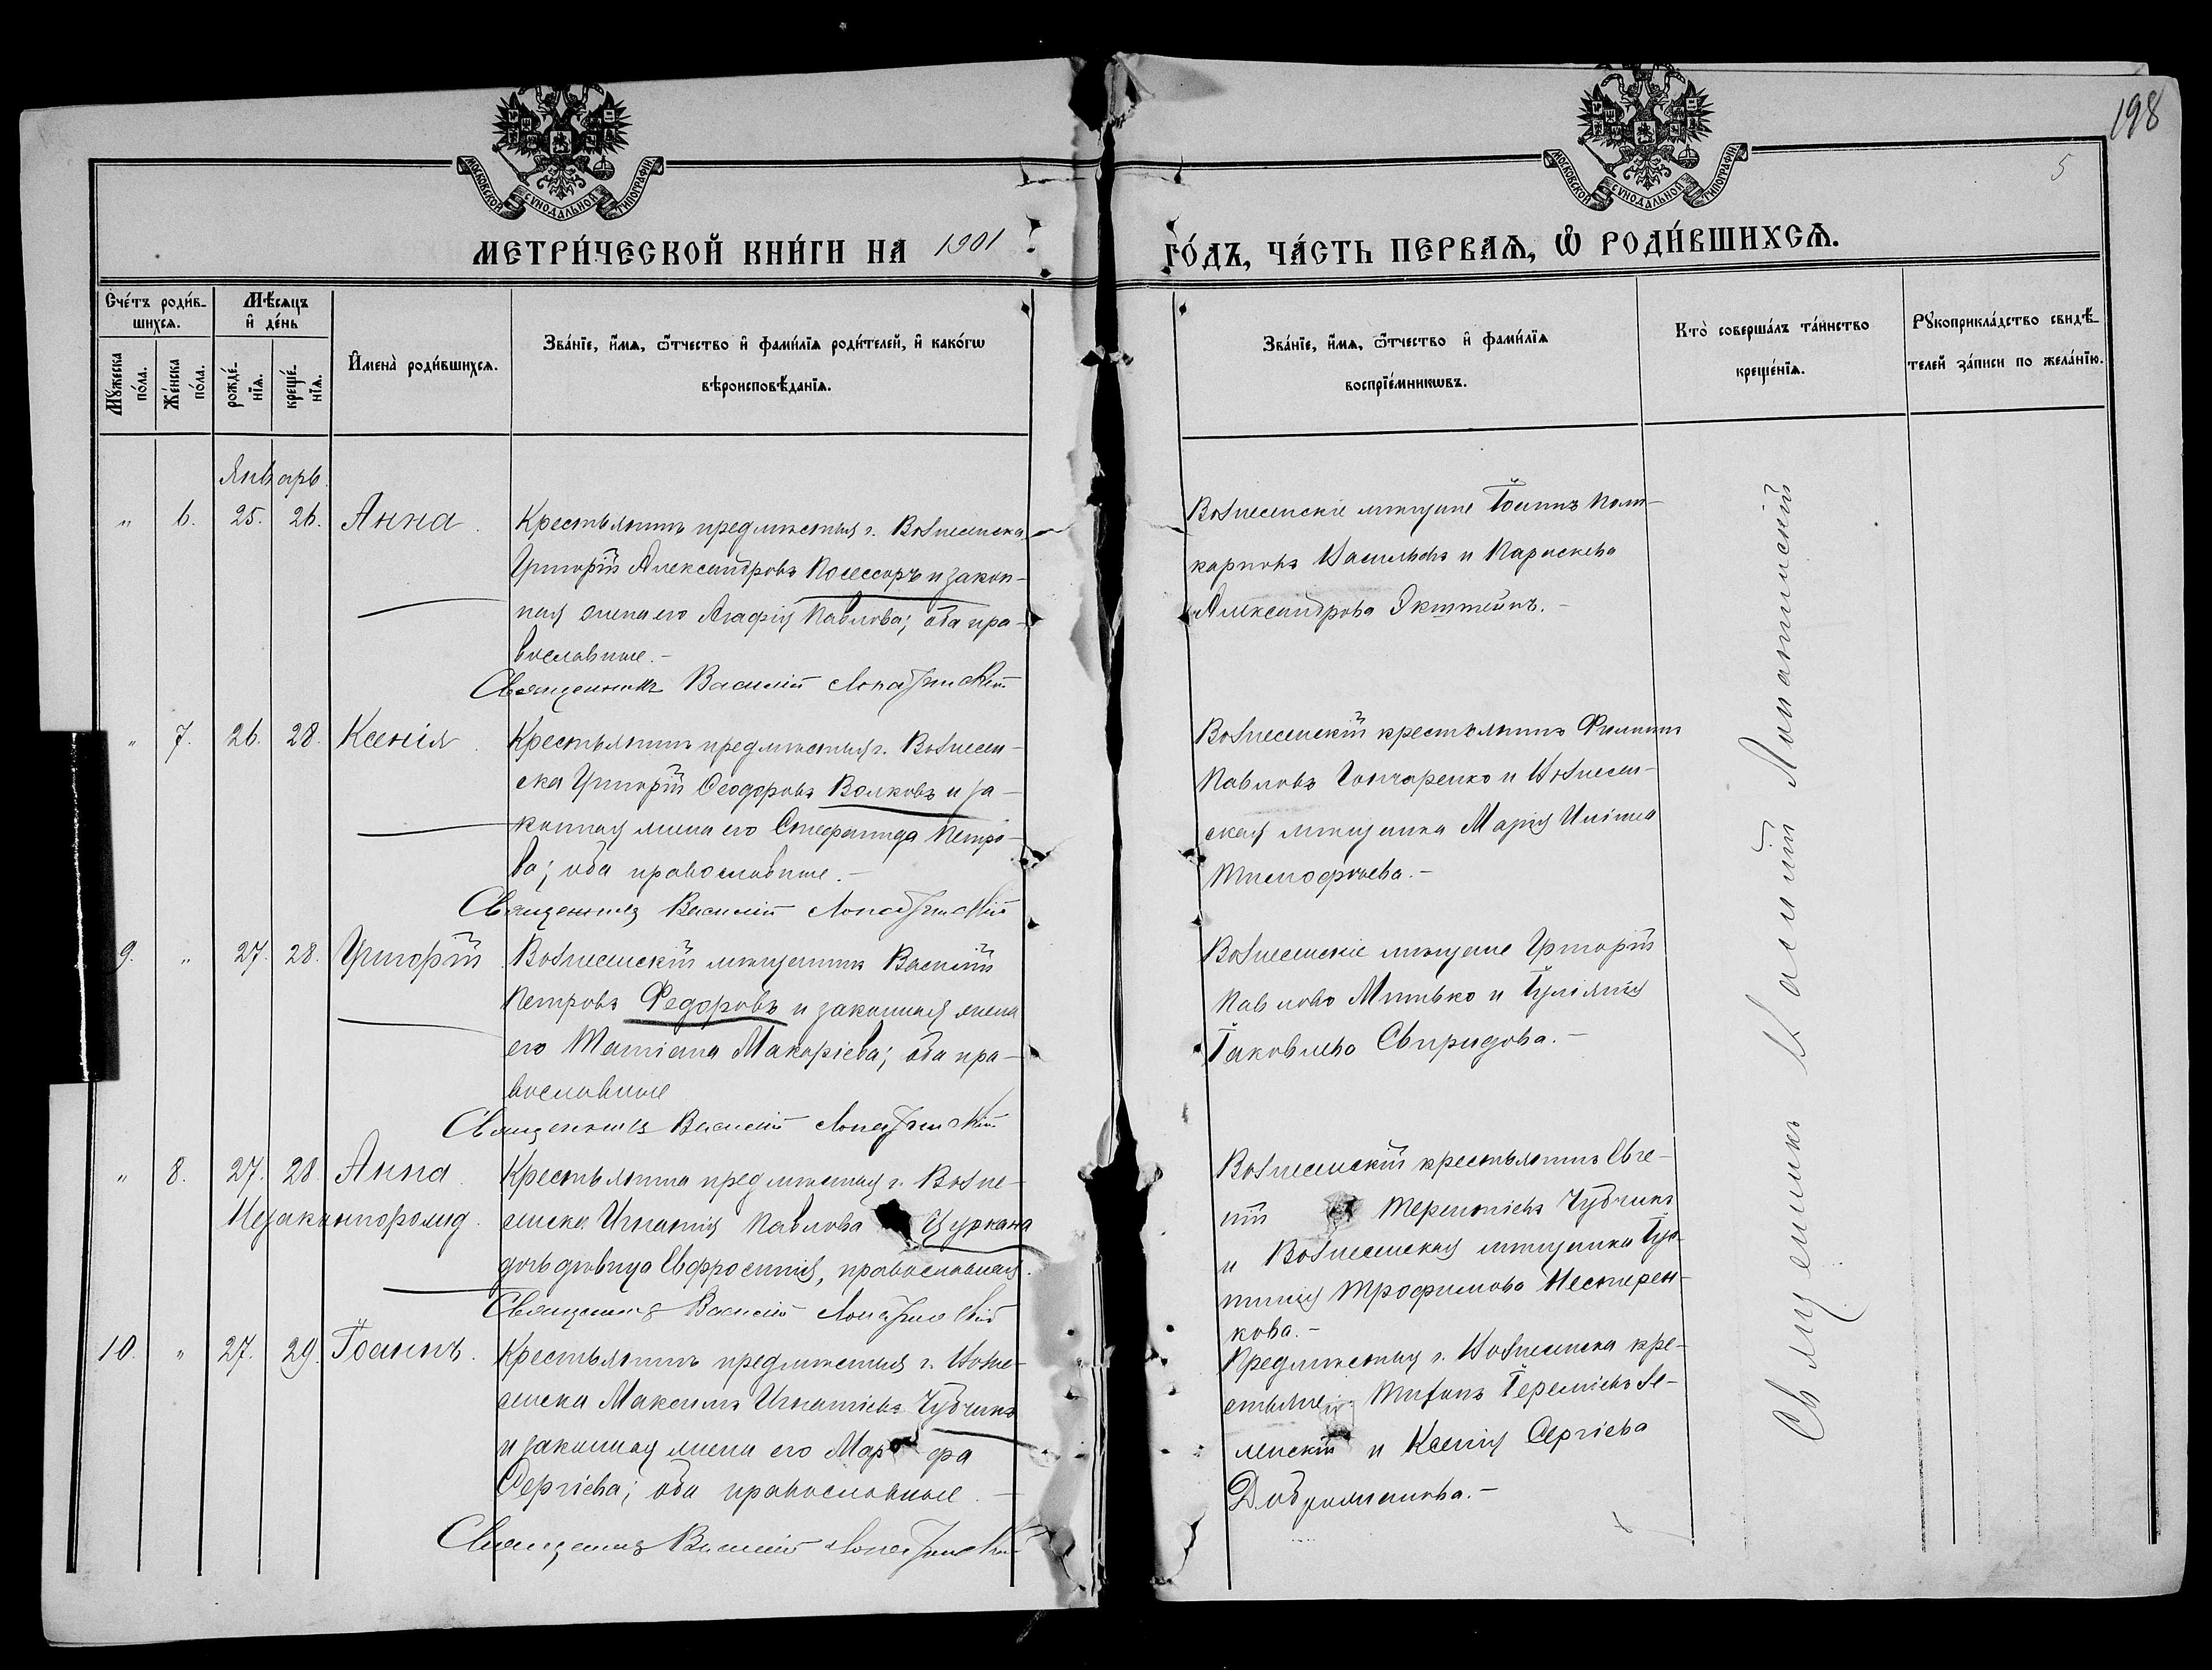 198
5
МОСКОВСКОЙ СѴНОДАЛЬНОЙ ТИПОГРАФІИ
МОСКОВСКОЙ СѴНОДАЛЬНОЙ ТИПОГРАФІИ
МЕТРИ́ЧЕСКОЙ КНИ́ГИ НА 1901
ГО́ДЪ, ЧА́СТЬ ПЕРВАѦ, Ѡ҆ РОДИ́ВШИХСѦ.
Счетъ роди́в-
шихсѧ.
Мѣсѧцъ
и҆ де́нь
Мꙋжеска
по́ла.
Же́нска
по́ла.
рожде́-
нїѧ.
креще́-
нїѧ.
И҆мена̀ роди́вшихсѧ.
Зва́нїе, и҆́мѧ, ѻ҆́тчество и҆ фами́лїѧ роди́телей, и҆ како́гѡ
вѣроисповѣ́данїѧ.
Зва́нїе, и҆́мѧ, ѻ҆́тчество и҆ фами́лїѧ
воспрїе́мникѡвъ.
Кто̀ соверша́лъ та́инство
креще́нїѧ.
Рꙋкоприкла́дство свидѣ́-
телей за́писи по жела́нїю.
Январь.
" 6. 25. 26. Анна.
Крестьянинъ предмѣстья г. Вознесенска
Григорій Александровъ Посессоръ и закон-
ная жена его Агафія Павлова; оба пра-
вославные.-
Священникъ Василій Лопатинскій
Вознесенскіе мѣщане Іоаннъ Поли-
карповъ Васильевъ и Параскева
Александрова Экштейнъ.-
" 7. 26. 28. Ксенія.
Крестьянинъ предмѣстья г. Вознесен-
ска Григорій Ѳеодоровъ Волковъ и за-
конная жена его Стефанида Петро-
ва; оба православные.-
Священникъ Василій Лопатинскій
Вознесенскій крестьянинъ Филиппъ
Павловъ Гончаренко и Вознесен-
ская мѣщанка Марія Иліина
Тимофѣева.-
9. " 27. 28. Григорій
Вознесенскій мѣщанинъ Василій
Петровъ Федоровъ и законная жена
его Татіана Макаріева; оба пра-
вославные
Священникъ Василій Лопатинскій
Вознесенскіе мѣщане Григорій
Павловъ Митько и Іуліанія
Іаковлева Свиридова.-
" 8. 27. 28. Анна.
Незаконнорожд.
Крестьянина предмѣстья г. Возне-
сенска Игнатія Павлова Цуркана
дочь дѣвица Евфросинія, православная.
Священникъ Василій Лопатинскій
Вознесенскій крестьянинъ Евге-
ній Терентіевъ Чубчикъ
и Вознесенская мѣщанка Іус-
тинія Трофимова Нестерен-
кова.-
10. " 27. 29. Іоаннъ.
Крестьянинъ предмѣстья г. Возне-
сенска Максимъ Игнатіевъ Чубчикъ
и законная жена его Мар фа
Сергіева; оба православные.-
Священникъ Василій Лопатинскій
Предмѣстья г. Вознесенска кре-
стьяне: Тифонъ Іереміевъ Зе-
ленскій и Ксенія Сергіева
Доброжанова.-
Священникъ Василій Лопатинскій